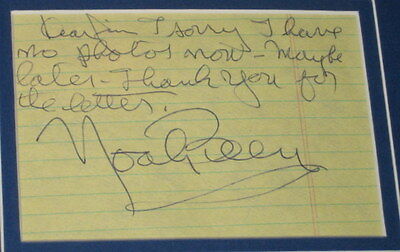 Dear Jim I sorry I have
no photos now - Maybe
later - Thank You for
the letter.